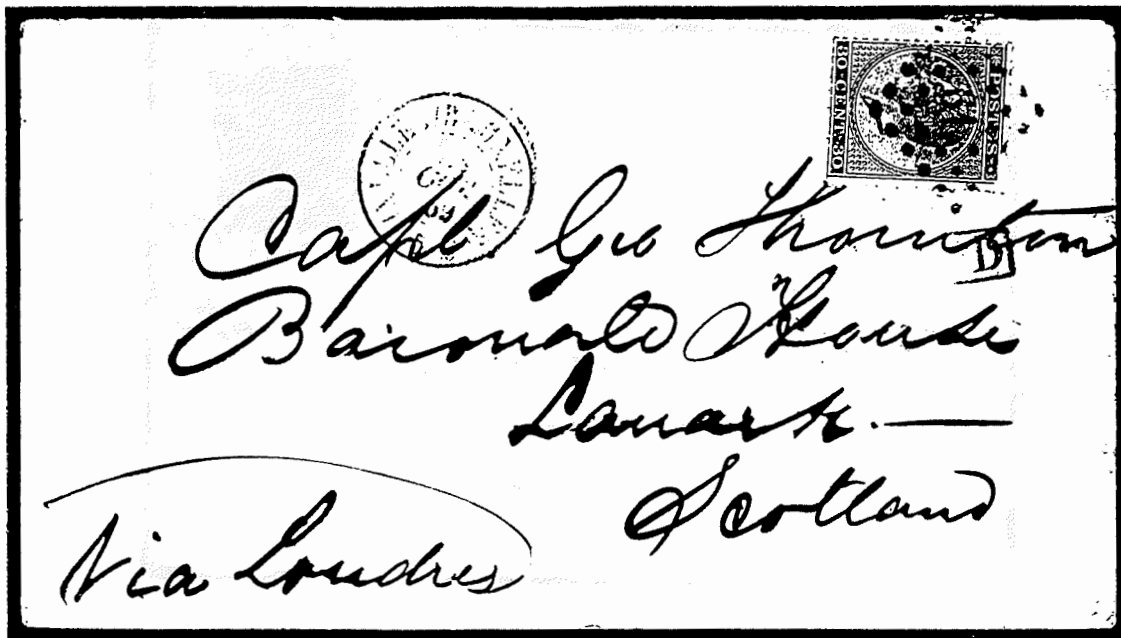 POSTES
30 · CENT · 30
PD
Capt Geo Thornton
Baronald House
Lanark. —
Scotland
Via Londres